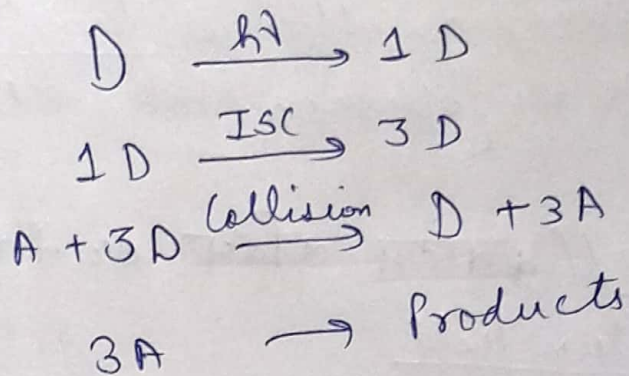 D hν → 1 D
1 D ISC → 3 D
A + 3 D Collision → D + 3 A
3 A → Products